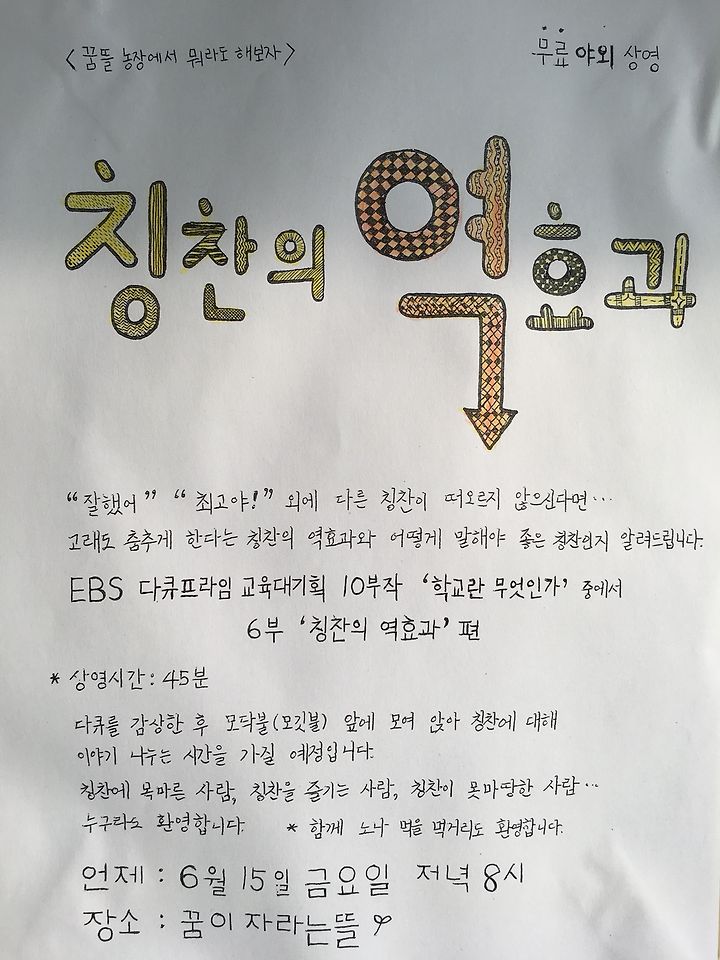 <꿈뜰 농장에서 뭐라도 해보자>
무료 야외 상영
칭찬의 역효과
“잘했어” “최고야!” 외에 다른 칭찬이 떠오르지 않으신다면…
고래도 춤추게 한다는 칭찬의 역효과와 어떻게 말해야 좋은 칭찬인지 알려드립니다.
EBS 다큐프라임 교육대기획 10부작 ‘학교란 무엇인가’ 중에서
6부 ‘칭찬의 역효과’ 편
* 상영시간: 45분
다큐를 감상한 후 모닥불(모깃불) 앞에 모여 앉아 칭찬에 대해
이야기 나누는 시간을 가질 예정입니다.
칭찬에 목마른 사람, 칭찬을 즐기는 사람, 칭찬이 못마땅한 사람…
누구라도 환영합니다. * 함께 노나 먹을 먹거리도 환영합니다.
언제 : 6월 15일 금요일 저녁 8시
장소 : 꿈이 자라는뜰